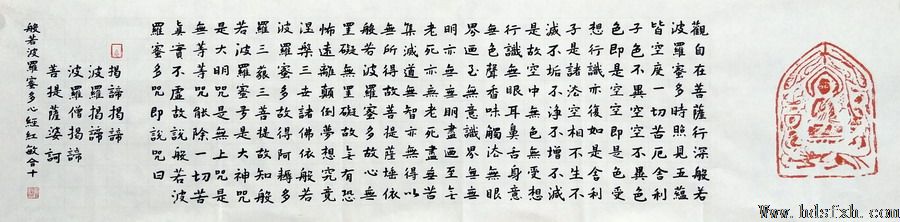 觀自在菩薩行深般若
波羅蜜多時照見五蘊
皆空度一切苦厄舍利
子色不異空空不異色
色即是空空即是色受
想行識亦復如是舍利
子是諸法空相不生不
滅不垢不淨不增不減
是故空中無色無受想
行識無眼耳鼻舌身意
無色聲香味觸法無眼
界迺至無意識界無無
明亦無無明盡迺至無
老死亦無老死盡無苦
集滅道無智亦無得以
無所得故菩提薩埵依
般若波羅蜜多故心無
罣礙無罣礙故無有恐
怖遠離顛倒夢想究竟
涅槃三世諸佛依般若
波羅蜜多故得阿耨多
羅三藐三菩提故知般
若波羅蜜多是大神咒
是大明咒是無上咒是
無等等咒能除一切苦
真實不虛故說般若波
羅蜜多咒即說咒曰
揭諦揭諦
波羅揭諦
波羅僧揭諦
菩提薩婆訶
般若波羅蜜多心經紅敏合十
Www.hdsfxh.com